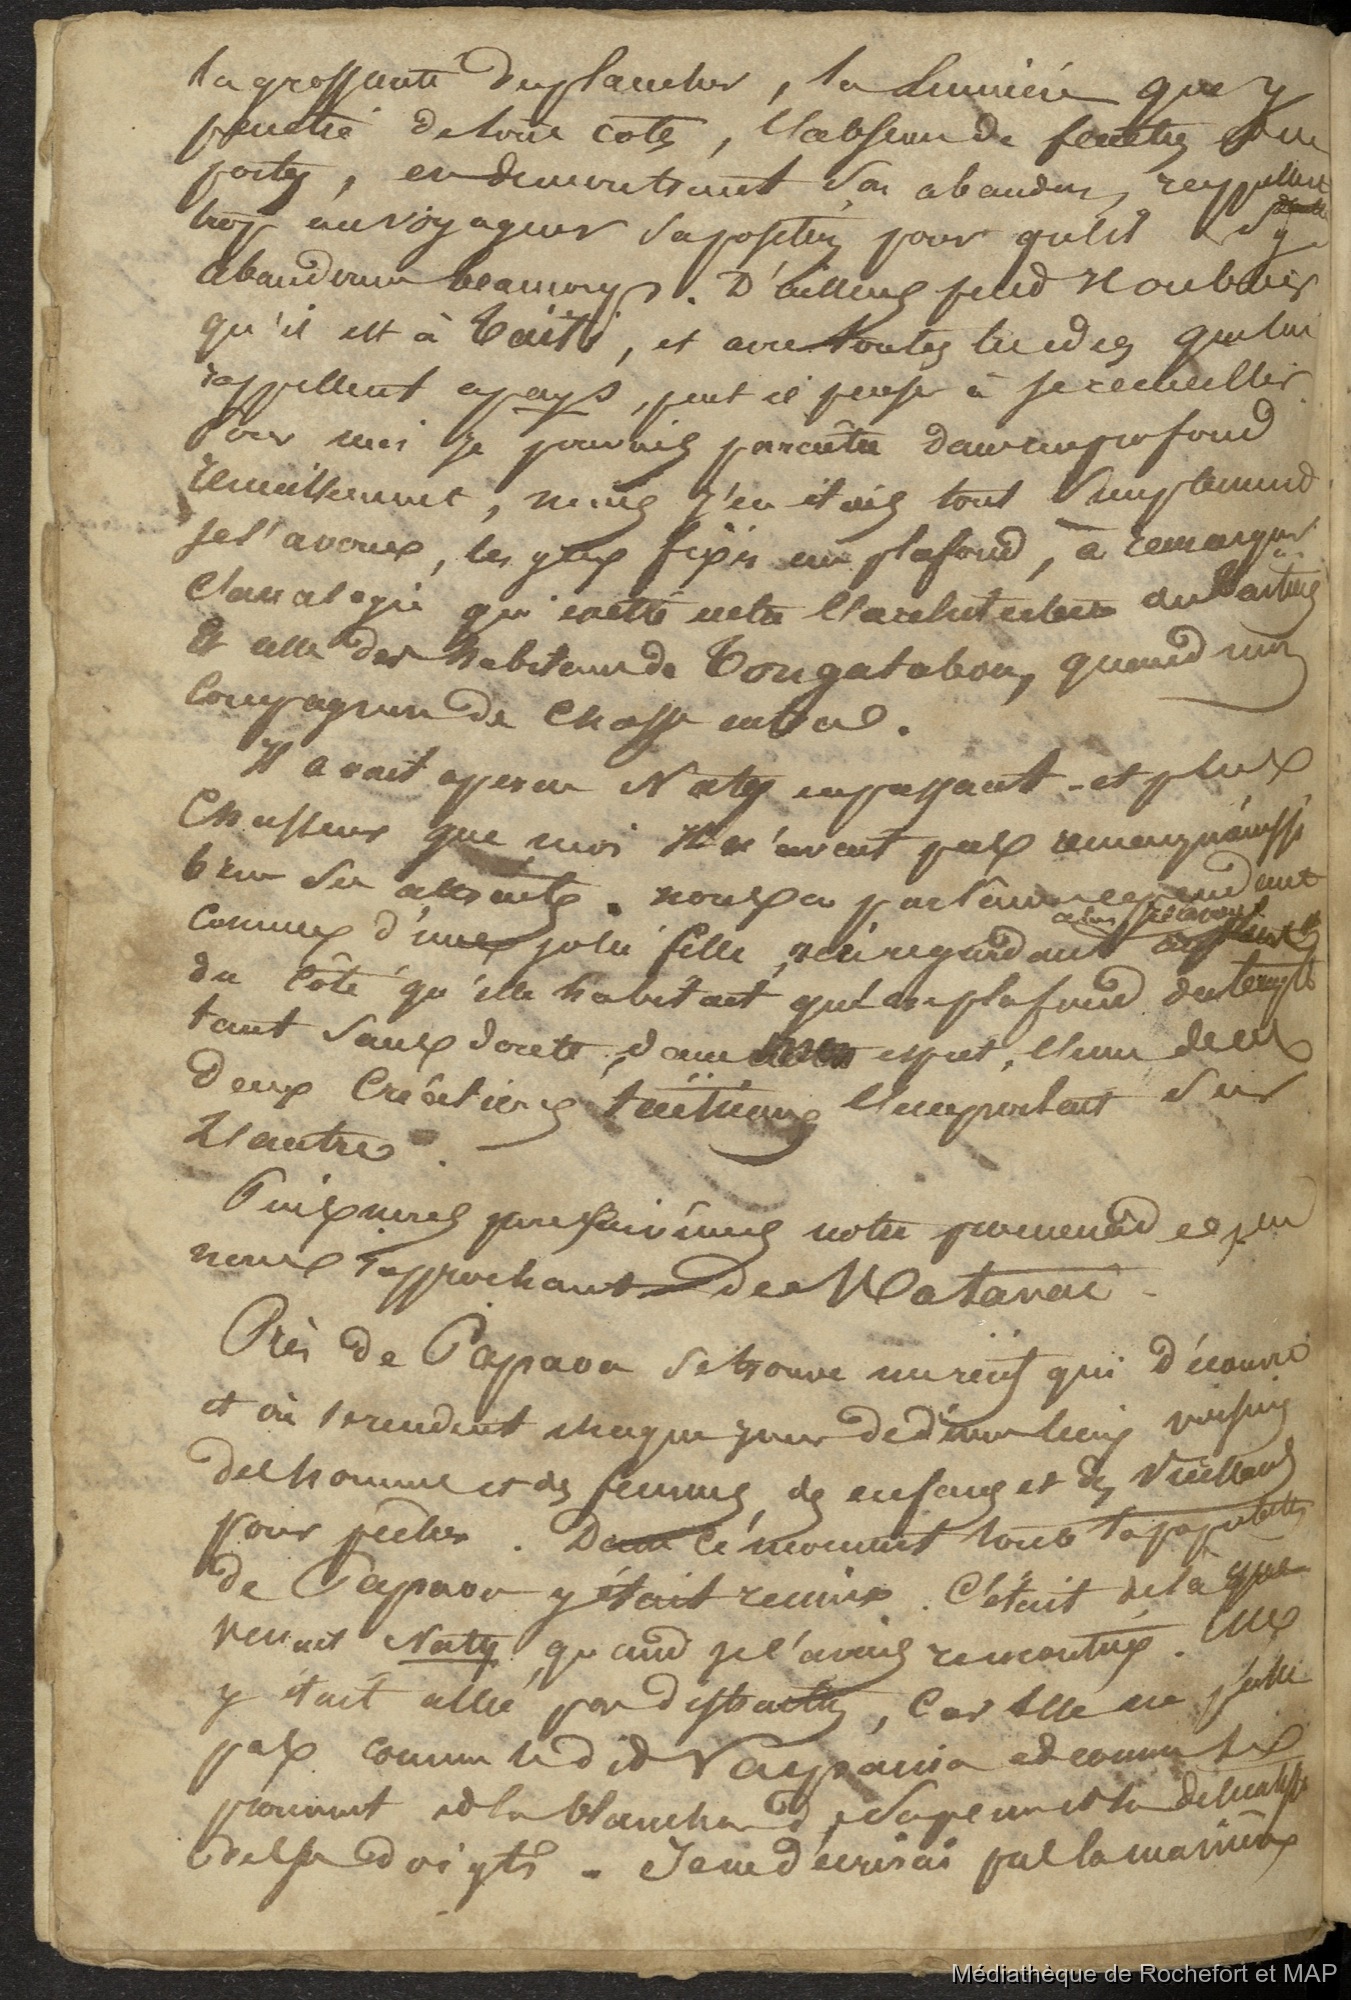 la grosseur des planches, la lumière que y
penetre de tous cotés, l'absence de fenetres et de
portes, en demontrant son abandon, rappellent
trop au voyageur sa position pour qu'il s'y
abandonne beaucoup. D'ailleurs peut il oublier
qu'il est à Taïti, et avec toutes les idées que lui
rappellent ce pays, peut il penser à se recueillir.
Pour moi je pouvais paraître dans un profond
recueillement, mais j'en étais tout simplement
je l'avoue, les yeux fixés au plafond, à remarquer
l'analogie qui existe entre l'architecture des Taïtiens
et celle des habitans de Tongatabou, quand mon
compagnon de chasse entra.
Il avait aperçu Naty en passant - et plus
chasseur que moi il n'avait pas remarqué aussi
bien ses attraits. nous en parlâmes cependant
comme d'une jolie fille, en regardant
du côté qu'elle habitait qu'au plafond du temple
tant sans doute, dans esprit, l'une de ces
deux créations taïtiennes l'emportait sur
l'autre.
Puis nous poursuivîmes notre promenade en
nous rapprochant de Matavaï.
Près de Papaoa se trouve un récif qui découvre
et où se rendent chaque jour des environs voisins
des hommes et des femmes, des enfans et des vieillards
pour pecher. Dans ce moment toute la population
de Papaoa y était reunie. C'était de là que
venait Naty quand je l'avais rencontrée. Elle
y était allée par distraction, car elle ne pêche
pas comme le dit Vaïpania et comme le
prouvent et la blancheur de sa peau et la delicatesse
de ses doigts. Je ne décrirai pas la manière